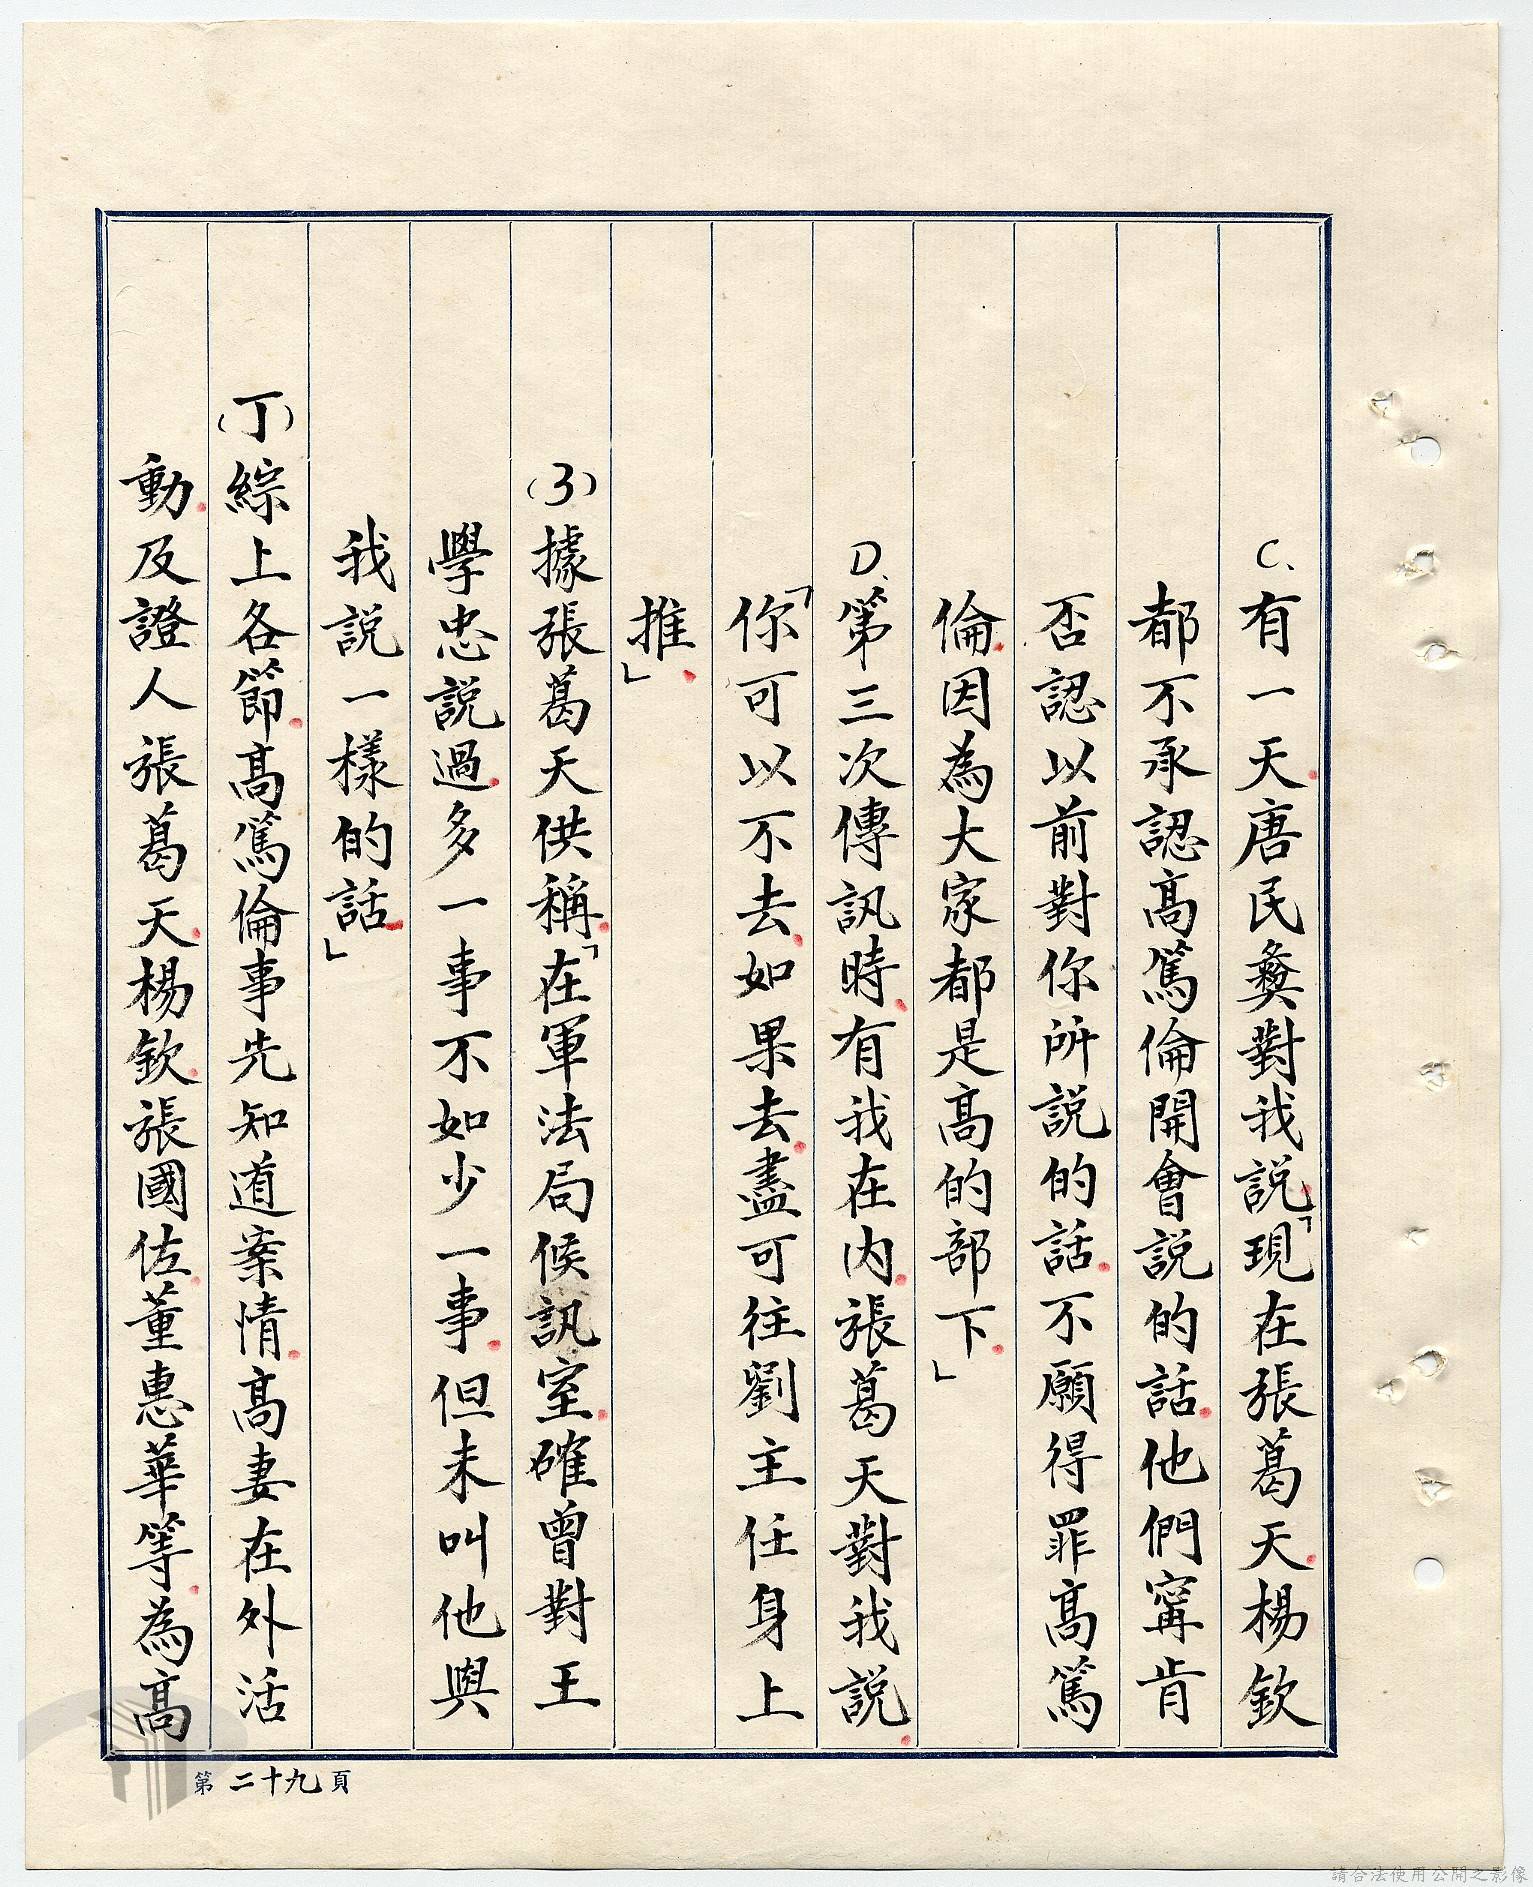 C、有一天唐民彝對我說「現在張葛天楊欽
都不承認高篤倫開會說的話他們寧肯
否認以前對你所說的話不願得罪高篤
倫因為大家都是高的部下」
D、第三次傳訊時有我在內張葛天對我說
「你可以不去如果去盡可往劉主任身上
推」
(3)據張葛天供稱「在軍法局候訊室確曾對王
學忠說過多一事不如少一事但未叫他與
我說一樣的話」
(丁)綜上各節高篤倫事先知道案情高妻在外活
動及證人張葛天楊欽張國佐董惠華等為高
第二十九頁
請合法使用公開之影像